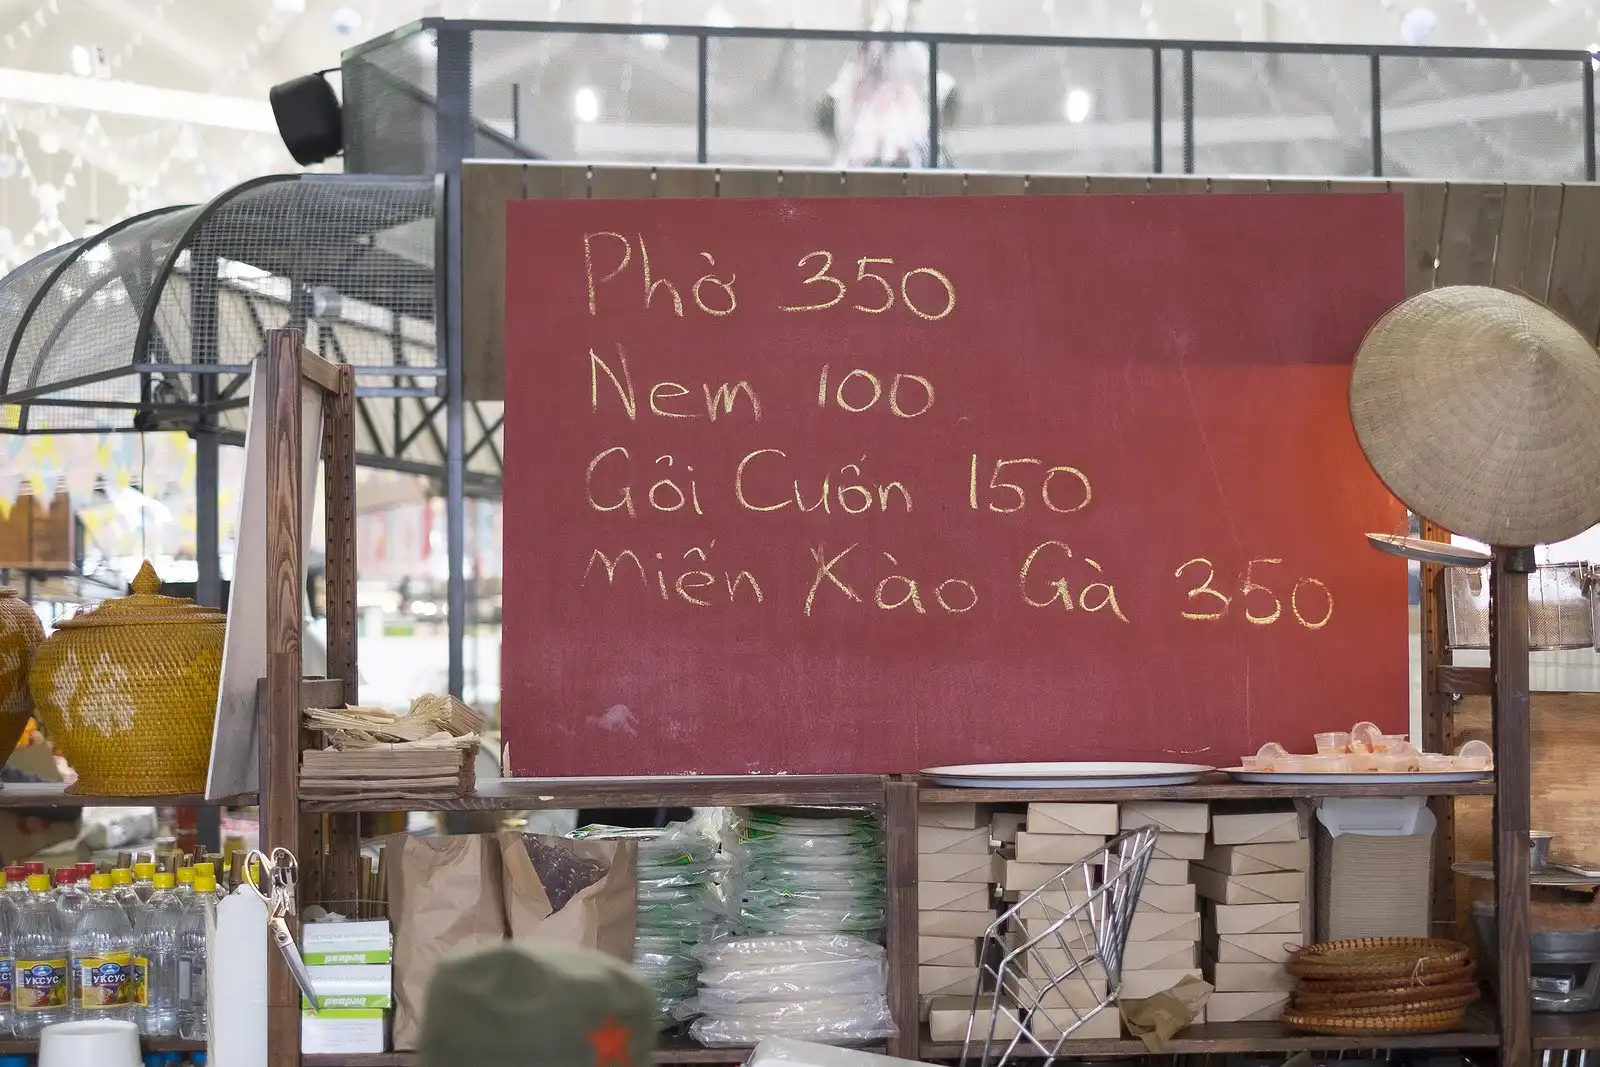 Phờ 350
Nem 100
Gôi Cuốn 150
Miến Xào Gà 350
УКСУС
УКСУС